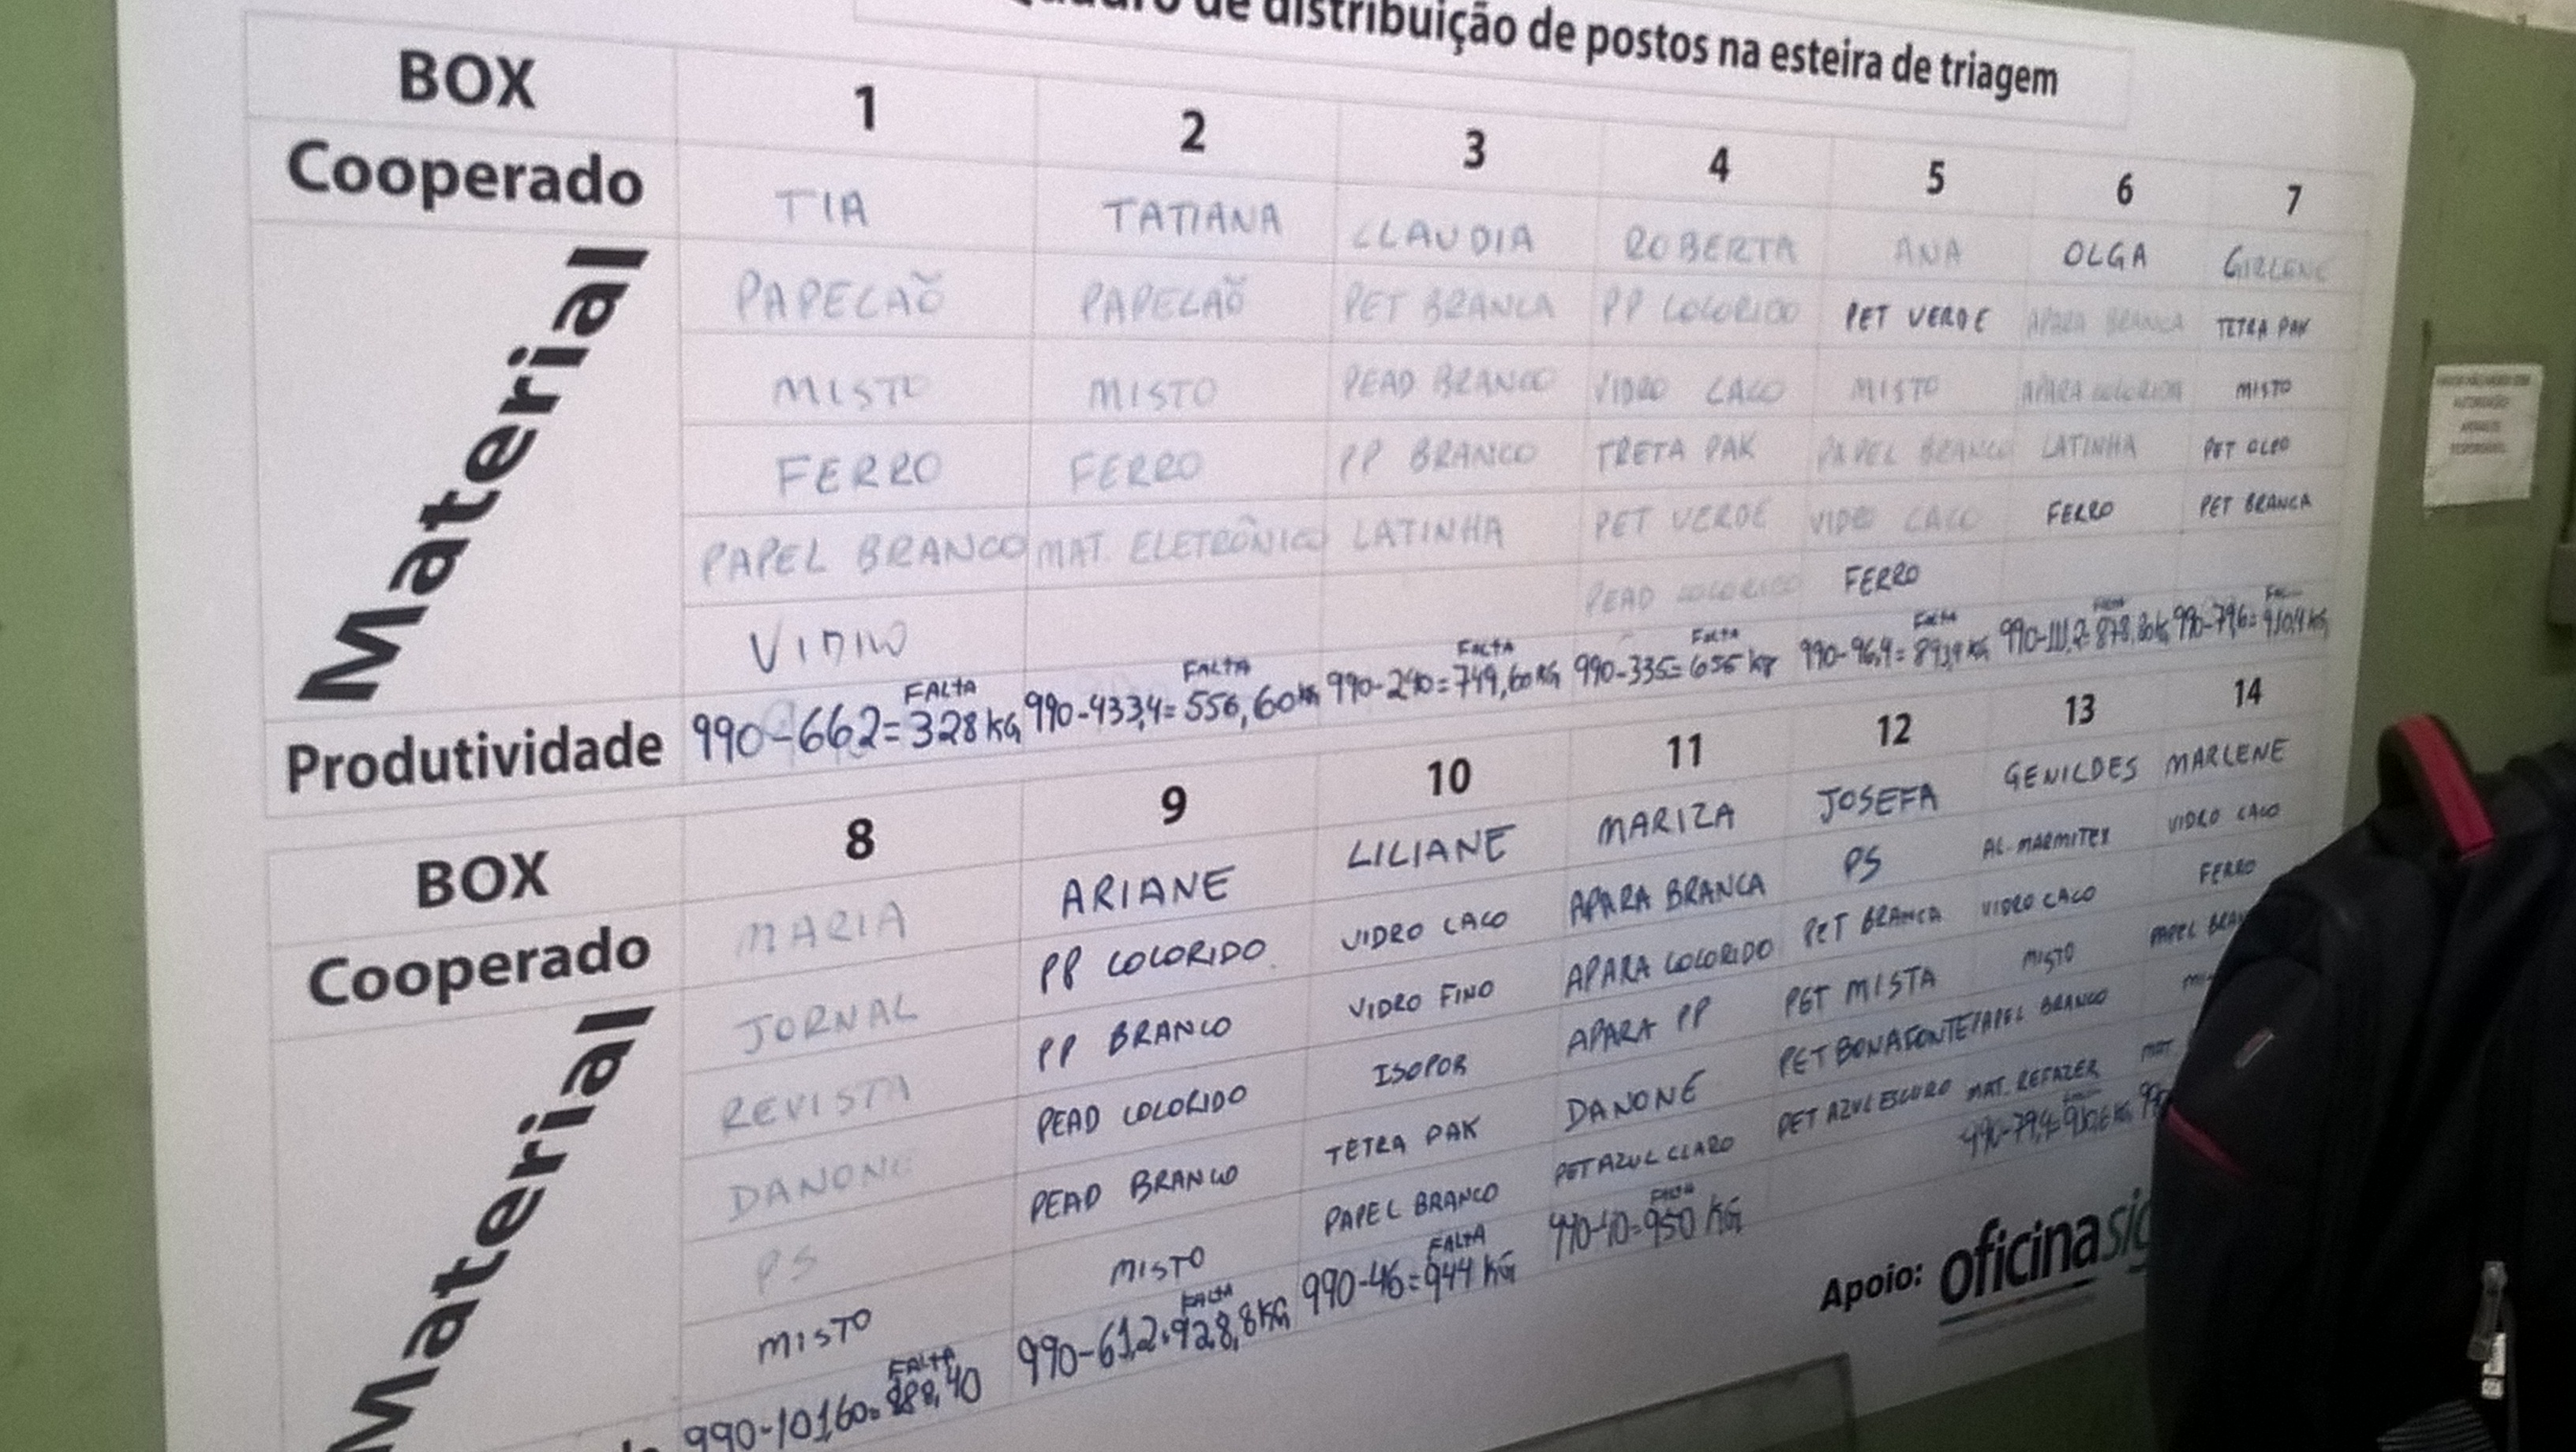 de distribuição de postos na esteira de triagem
BOX 1 2 3 4 5 6 7
Cooperado TIA TATIANA CLAUDIA ROBERTA ANA OLGA GIRLENE
Material
PAPELAÕ PAPELAÕ PET BRANCA PP COLORIDO PET VERDE APARA BRANCA TETRA PAK
MISTO MISTO PEAD BRANCO VIDRO CACO MISTO APARA COLORIDA MISTO
FERRO FERRO PP BRANCO TRETA PAK PAPEL BRANCO LATINHA PET OLEO
PAPEL BRANCO MAT. ELETRÔNICO LATINHA PET VERDE VIDRO CACO FERRO PET BRANCA
PEAD COLORIDO FERRO
FALTA FALTA FALTA FALTA FALTA FALTA
Produtividade 990-662=328KG 990-433,4=556,60KG 990-240=749,60KG 990-335=655 kg 990-96,4=893,9KG 990-111,2=878,80K 990-79,6=910,4KG
BOX 8 9 10 11 12 13 14
Cooperado MARIA ARIANE LILIANE MARIZA JOSEFA GENILDES MARLENE
Material
JORNAL PP COLORIDO VIDRO CACO APARA BRANCA PS AL. MARMITEX VIDRO CACO
REVISTA PP BRANCO VIDRO FINO APARA COLORIDO PET BRANCA VIDRO CACO FERRO
DANONE PEAD COLORIDO ISOPOR APARA PP PET MISTA MISTO PAPEL
PS PEAD BRANCO TETRA PAK DANONE PET BONAFONTE PAPEL BRANCO
MISTO MISTO PAPEL BRANCO PET AZUL CLARO PET AZUL ESCURO MAT. REFAZER
FALTA FALTA FALTA FALTA
990-101,60=888,40 990-61,2=928,8KG 990-46=944 KG 990-40=950 KG 990-79,4=910,6KG
Apoio: oficina